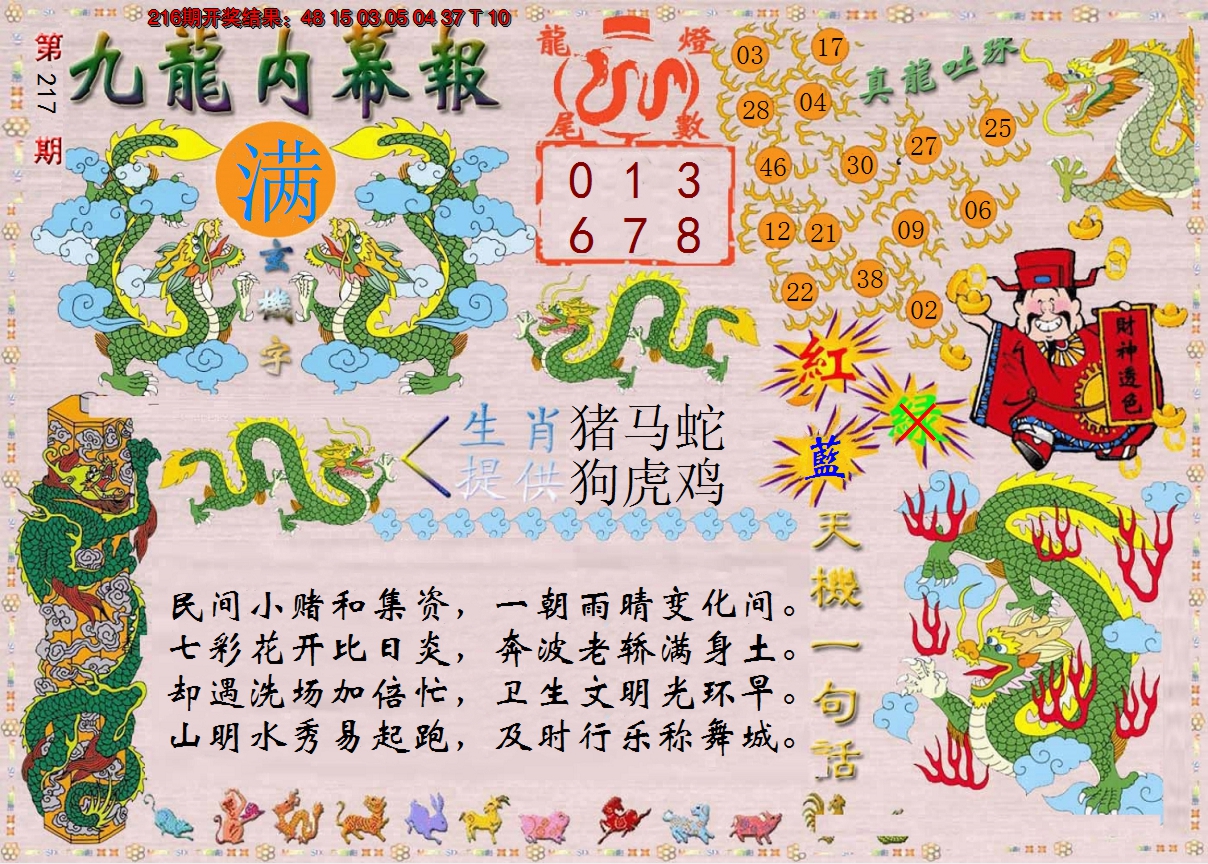 216期开奖结果：48 15 03 05 04 37 T 10
第217期
九龍内幕報
满
玄機字
龍燈
尾數
0 1 3
6 7 8
真龍吐珠
03 17
28 04
46 30 27 25
12 21 09 06
22 38 02
財神透色
紅
绿
藍
生肖提供
猪马蛇
狗虎鸡
天機一句話
民间小赌和集资，一朝雨晴变化间。
七彩花开比日炎，奔波老轿满身土。
却遇洗场加倍忙，卫生文明光环早。
山明水秀易起跑，及时行乐称舞城。